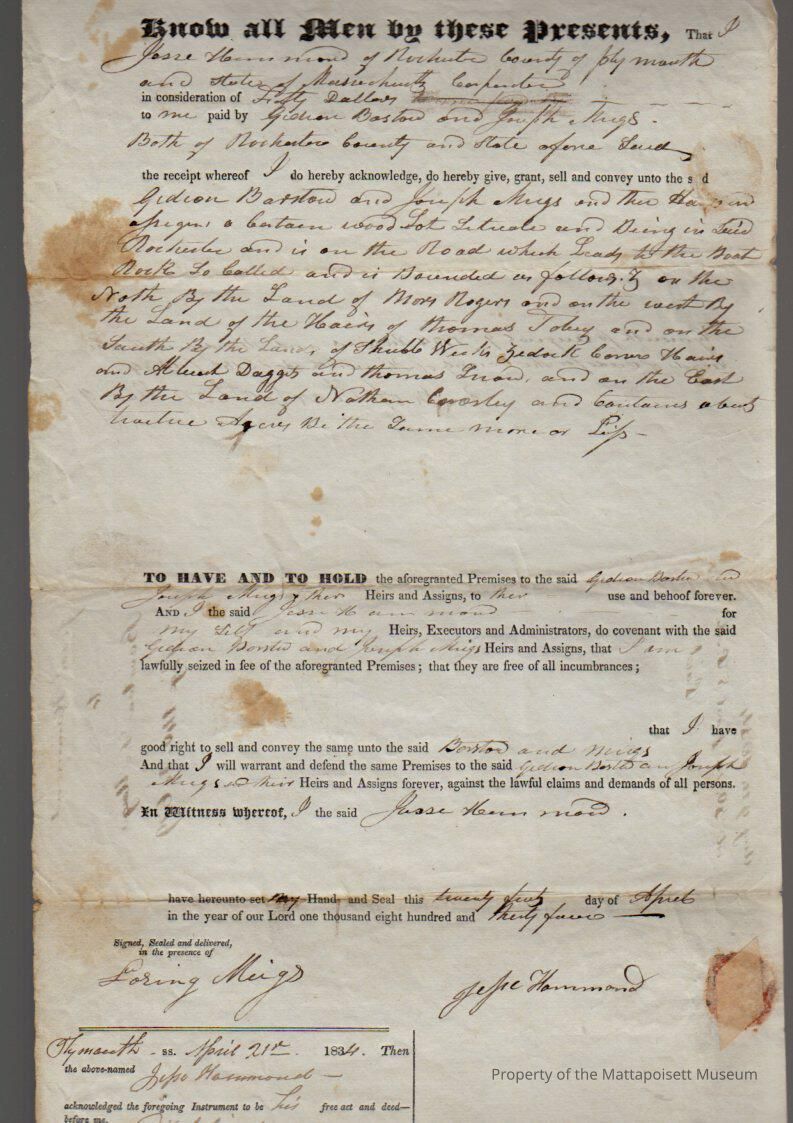 Know all Men by these Presents, That I
Jesse Hammond of Rochester County of plymouth
and state of Massachusetts Carpenter
in consideration of Fifty Dollars
to me paid by Gideon Bastow and Joseph Migs
Both of Rochester County and State afore Said
the receipt whereof I do hereby acknowledge, do hereby give, grant, sell and convey unto the s d
Gideon Barstow and Joseph Migs and ther
assigns a Certain wood Lot Situate and Being in Said
Rochester and is on the Road which Leads to the Boat
Rock So Called and is Bounded as follows on the
North By the Land of Mors Rogers and on the west By
the Land of the Hairs of thomas Tobey and on the
South By the Land of Weeks Hairs
and Daggit and thomas Snow, and on the East
By the Land of Nathan and Contains about
twelve Acres Be the Same more or Less
TO HAVE AND TO HOLD the aforegranted Premises to the said Gideon
Joseph Migs & ther Heirs and Assigns, to ther use and behoof forever.
AND I the said Jesse Hammond for
my Self and my Heirs, Executors and Administrators, do covenant with the said
Gideon Borstow and Joseph Migs Heirs and Assigns, that I am
lawfully seized in fee of the aforegranted Premises; that they are free of all incumbrances;
that I have
good right to sell and convey the same unto the said Borstow and Migs
And that I will warrant and defend the same Premises to the said Gideon Joseph
Migs and their Heirs and Assigns forever, against the lawful claims and demands of all persons.
In Witness whereof, I the said Jesse Hammond.
have hereunto set my Hand and Seal this twenty first day of April
in the year of our Lord one thousand eight hundred and thirty foure
Signed, Sealed and delivered,
in the presence of
Loring Meigs
Jesse Hammond
Plymouth - ss. April 21st 1834. Then
the above-named Jesse Hammond
acknowledged the foregoing Instrument to be his free act and deed—
before me,
Property of the Mattapoisett Museum